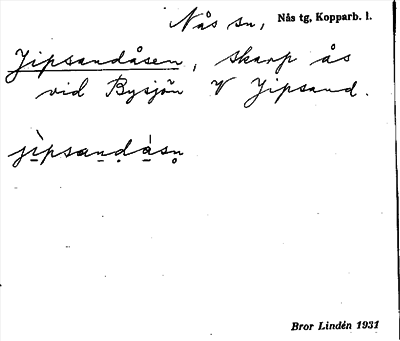 Nås sn, Nås tg, Kopparb. l.
Jipsandåsen, skarp ås
vid Bysjön V Jipsand.
jìpsanḍåsn̥
Bror Lindén 1931